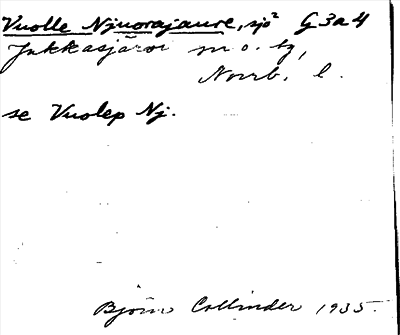 Vuolle Njuorajaure, sjö² G3a4
Jukkasjärvi sn o. tg,
Norrb. l.
se Vuolep Nj.
Björn Collinder 1935.